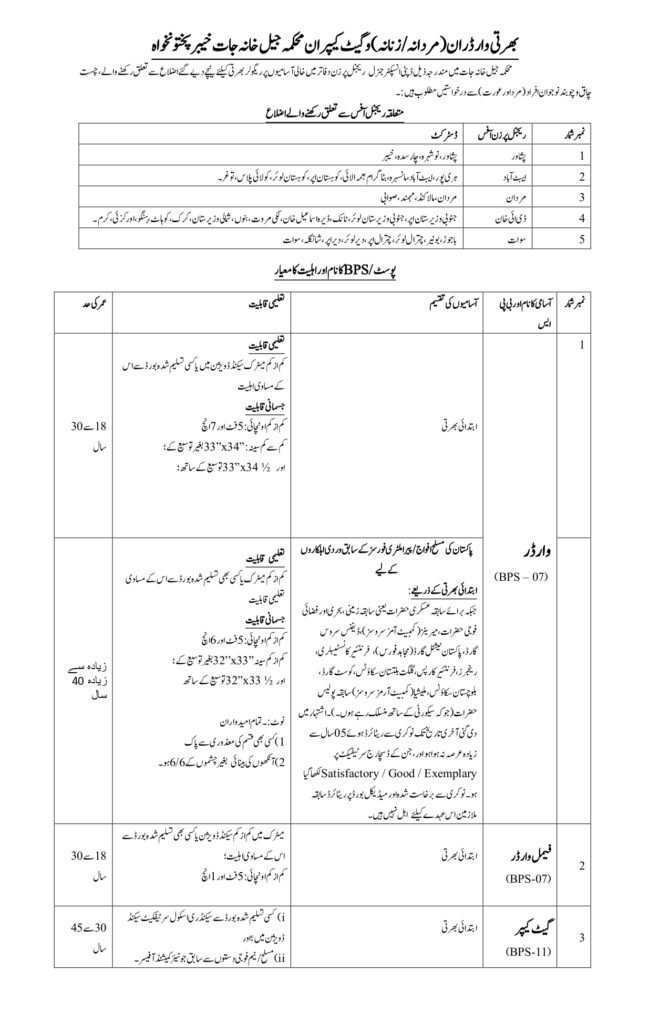 بھرتی وارڈران (مردانہ/زنانہ) و گیٹ کیپران محکمہ جیل خانہ جات خیبر پختونخواہ
محکمہ جیل خانہ جات میں مندرجہ ذیل ڈپٹی انسپکٹر جنرل ریجنل پرزن دفاتر میں خالی آسامیوں پر ریگولر بھرتی کیلئے نیچے دیے گئے اضلاع سے تعلق رکھنے والے، چست
چاق و چوبند نوجوان افراد (مرد اور عورت) سے درخواستیں مطلوب ہیں:۔
متعلقہ ریجنل آفس سے تعلق رکھنے والے اضلاع
نمبر شمار ریجنل پرزن آفس ڈسٹرکٹ
1 پشاور پشاور، نوشہرہ، چارسدہ، خیبر
2 ایبٹ آباد ہری پور، ایبٹ آباد، مانسہرہ، بٹاگرام بمعہ الائی، کوہستان اپر، کوہستان لوئر، کولائی پلاس، تورغر۔
3 مردان مردان، مالاکنڈ، مہمند، صوابی
4 ڈی آئی خان جنوبی وزیرستان اپر، جنوبی وزیرستان لوئر، ٹانک، ڈیرہ اسماعیل خان، لکی مروت، بنوں، شمالی وزیرستان، کرک، کوہاٹ، ہنگو، اورکزئی، کرم۔
5 سوات باجوڑ، بونیر، چترال لوئر، چترال اپر، دیر لوئر، دیر اپر، شانگلہ، سوات
پوسٹ/BPS کا نام اور اہلیت کا معیار
نمبر شمار آسامی کا نام اور بی پی آسامیوں کی تقسیم تعلیمی قابلیت عمر کی حد
ایس
1
وارڈر
(BPS – 07)
ابتدائی بھرتی
تعلیمی قابلیت
کم از کم میٹرک سیکنڈ ڈویژن میں یا کسی تسلیم شدہ بورڈ سے اس
کے مساوی اہلیت
جسمانی قابلیت
کم از کم اونچائی: 5 فٹ اور 7 انچ
کم سے کم سینہ: "33"x34 بغیر توسیع کے؛
اور ½ 33"x34 توسیع کے ساتھ؛
18 سے 30
سال
پاکستان کی مسلح افواج/پیراملٹری فورسز کے سابق وردی اہلکاروں
کے لیے
ابتدائی بھرتی کے ذریعے:
جبکہ برائے سابقہ عسکری حضرات یعنی سابقہ زمینی، بحری اور فضائی
فوجی حضرات، میرینز (کمبیٹ آرمز سروسز)، ڈیفنس سروس
گارڈ، پاکستان نیشنل گارڈ (مجاہد فورس)، فرنٹیئر کانسٹیبلری،
رینجرز، فرنٹیئر کارپس، گلگت بلتستان سکاؤٹس، کوسٹ گارڈ،
بلوچستان سکاؤٹس، ملیشیا (کمبیٹ آرمز سروسز) سابقہ پولیس
حضرات (جو کہ سیکورٹی کے ساتھ منسلک رہے ہوں)۔ اشتہار میں
دی گئی آخری تاریخ تک نوکری سے ریٹائرڈ ہوئے 05 سال سے
زیادہ عرصہ نہ ہوا ہو اور، جن کے ڈسچارج سرٹیفکیٹ پر
Satisfactory / Good / Exemplary لکھا گیا
ہو۔ نوکری سے برخاست شدہ اور میڈیکل بورڈ پر ریٹائرڈ سابقہ
ملازمین اس عہدے کیلئے اہل نہیں ہیں۔
تعلیمی قابلیت
کم از کم میٹرک یا کسی بھی تسلیم شدہ بورڈ سے اس کے مساوی
تعلیمی قابلیت
جسمانی قابلیت
کم از کم اونچائی: 5 فٹ اور 6 انچ
کم از کم سینہ "32"x33 بغیر توسیع کے؛
اور ½ 32"x33 توسیع کے ساتھ
نوٹ:۔ تمام امیدواران
1) کسی بھی قسم کی معذوری سے پاک
2) آنکھوں کی بینائی بغیر چشموں کے 6/6 ہو۔
زیادہ سے
زیادہ 40
سال
2
فیمل وارڈر
(BPS-07)
ابتدائی بھرتی
میٹرک میں کم از کم سیکنڈ ڈویژن یا کسی بھی تسلیم شدہ بورڈ سے
اس کے مساوی اہلیت؛
کم از کم اونچائی: 5 فٹ اور 1 انچ
18 سے 30
سال
3
گیٹ کیپر
(BPS-11)
ابتدائی بھرتی
i) کسی تسلیم شدہ بورڈ سے سیکنڈری اسکول سرٹیفکیٹ سیکنڈ
ڈویژن میں؛ اور
ii) مسلح/نیم فوجی دستوں سے سابق جونیئر کمیشنڈ آفیسر۔
30 سے 45
سال